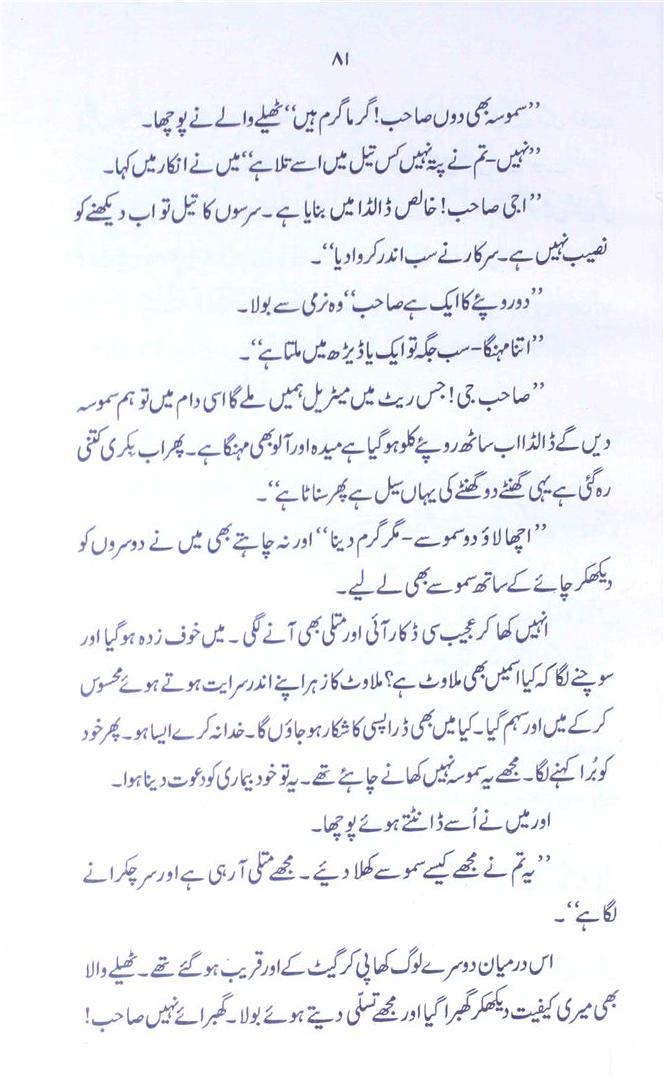 ۸۱
’’سموسہ بھی دوں صاحب! گرما گرم ہیں‘‘ ٹھیلے والے نے پوچھا۔
’’نہیں-تم نے پتہ نہیں کس تیل میں اسے تلا ہے‘‘ میں نے انکار میں کہا۔
’’اجی صاحب! خالص ڈالڈا میں بنایا ہے۔ سرسوں کا تیل تو اب دیکھنے کو
نصیب نہیں ہے۔ سرکار نے سب اندر کروا دیا‘‘۔
’’دو روپئے کا ایک ہے صاحب‘‘ وہ نرمی سے بولا۔
’’اتنا مہنگا-سب جگہ تو ایک یا ڈیڑھ میں ملتا ہے‘‘۔
’’صاحب جی! جس ریٹ میں میٹریل ہمیں ملے گا اسی دام میں تو ہم سموسہ
دیں گے ڈالڈا اب ساٹھ روپئے کلو ہو گیا ہے میدہ اور آلو بھی مہنگا ہے۔ پھر اب بِکری کتنی
رہ گئی ہے یہی گھنٹے دو گھنٹے کی یہاں سیل ہے پھر سناٹا ہے‘‘۔
’’اچھا لاؤ دو سموسے-مگر گرم دینا‘‘ اور نہ چاہتے بھی میں نے دوسروں کو
دیکھکر چائے کے ساتھ سموسے بھی لے لیے۔
انہیں کھا کر عجیب سی ڈکار آئی اور متلی بھی آنے لگی۔ میں خوف زدہ ہو گیا اور
سوچنے لگا کہ کیا اسمیں بھی ملاوٹ ہے؟ ملاوٹ کا زہر اپنے اندر سرایت ہوتے ہوئے محسوس
کر کے میں اور سہم گیا۔ کیا میں بھی ڈراپسی کا شکار ہو جاؤں گا۔ خدا نہ کرے ایسا ہو۔ پھر خود
کو بُرا کہنے لگا۔ مجھے یہ سموسہ نہیں کھانے چاہئے تھے۔ یہ تو خود بیماری کو دعوت دینا ہوا۔
اور میں نے اُسے ڈانٹتے ہوئے پوچھا۔
’’یہ تم نے مجھے کیسے سموسے کھلا دئیے۔ مجھے متلی آ رہی ہے اور سر چکرانے
لگا ہے‘‘۔
اس درمیان دوسرے لوگ کھا پی کر گیٹ کے اور قریب ہو گئے تھے۔ ٹھیلے والا
بھی میری کیفیت دیکھکر گھبرا گیا اور مجھے تسلّی دیتے ہوئے بولا۔ گھبرائے نہیں صاحب!